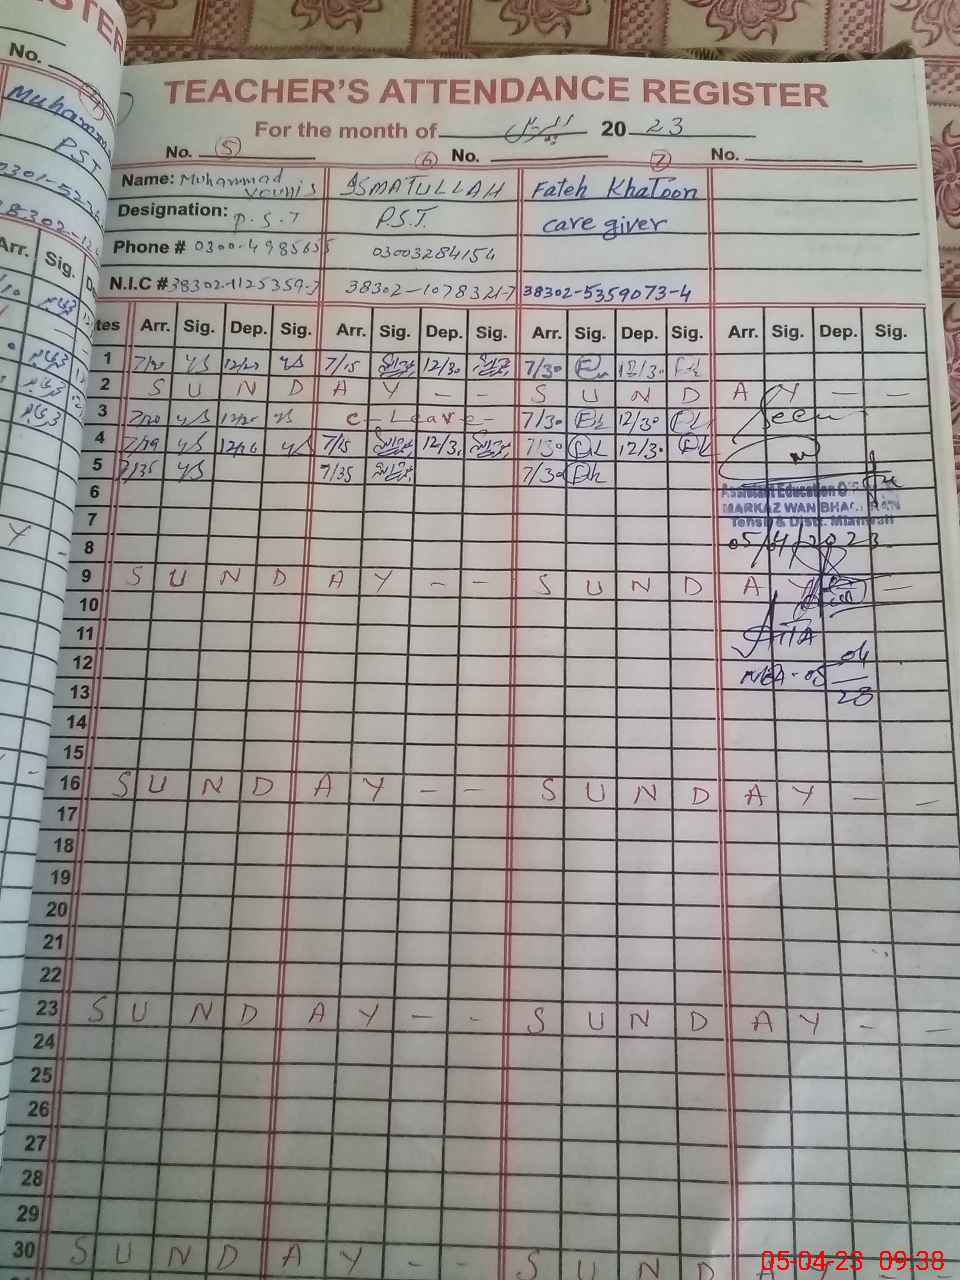 STER
No.
Muhamm
PST
0301-522
38302-12
Arr. Sig.
TEACHER'S ATTENDANCE REGISTER
For the month of 2023
No. 5 6 No. 7 No.
Name: Muhammad Younis ISMATULLAH Fateh Khatoon
Designation: P.S.T P.S.T. care giver
Phone # 0300-4985655 03003284154
N.I.C # 38302-1125359-7 38302-1078321-7 38302-5359073-4
tes Arr. Sig. Dep. Sig. Arr. Sig. Dep. Sig. Arr. Sig. Dep. Sig. Arr. Sig. Dep. Sig.
1 7/20 12/20 7/15 12/30 7/30 12/30
2 S U N D A Y - - S U N D A Y - -
3 7/20 12/20 C-Leave- 7/30 12/30 Seen
4 7/29 12/26 7/15 12/30 7/30 12/30
5 7/35 7/35 7/30
6 Assistant Education
7 MARKAZ WAN BHACHRAN
Tehsil & Distt. Mianwali
8 05/04/2023
9 S U N D A Y - - S U N D A Y -
10
11
12 MEA-05 04
13 23
14
15
16 S U N D A Y - - S U N D A Y - -
17
18
19
20
21
22
23 S U N D A Y - - S U N D A Y - -
24
25
26
27
28
29
30 S U N D A Y - - S U N D A
05-04-23 09:38